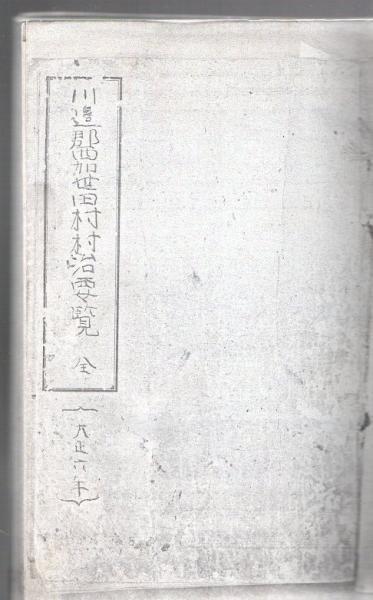 川邉郡西加世田村村治要覧 全
大正六年